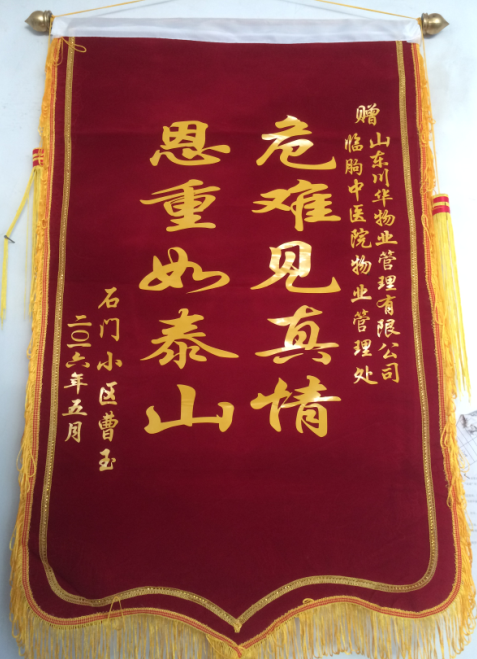 赠山东川华物业管理有限公司
临朐中医院物业管理处
危难见真情
恩重如泰山
石门小区曹玉
二〇一六年五月